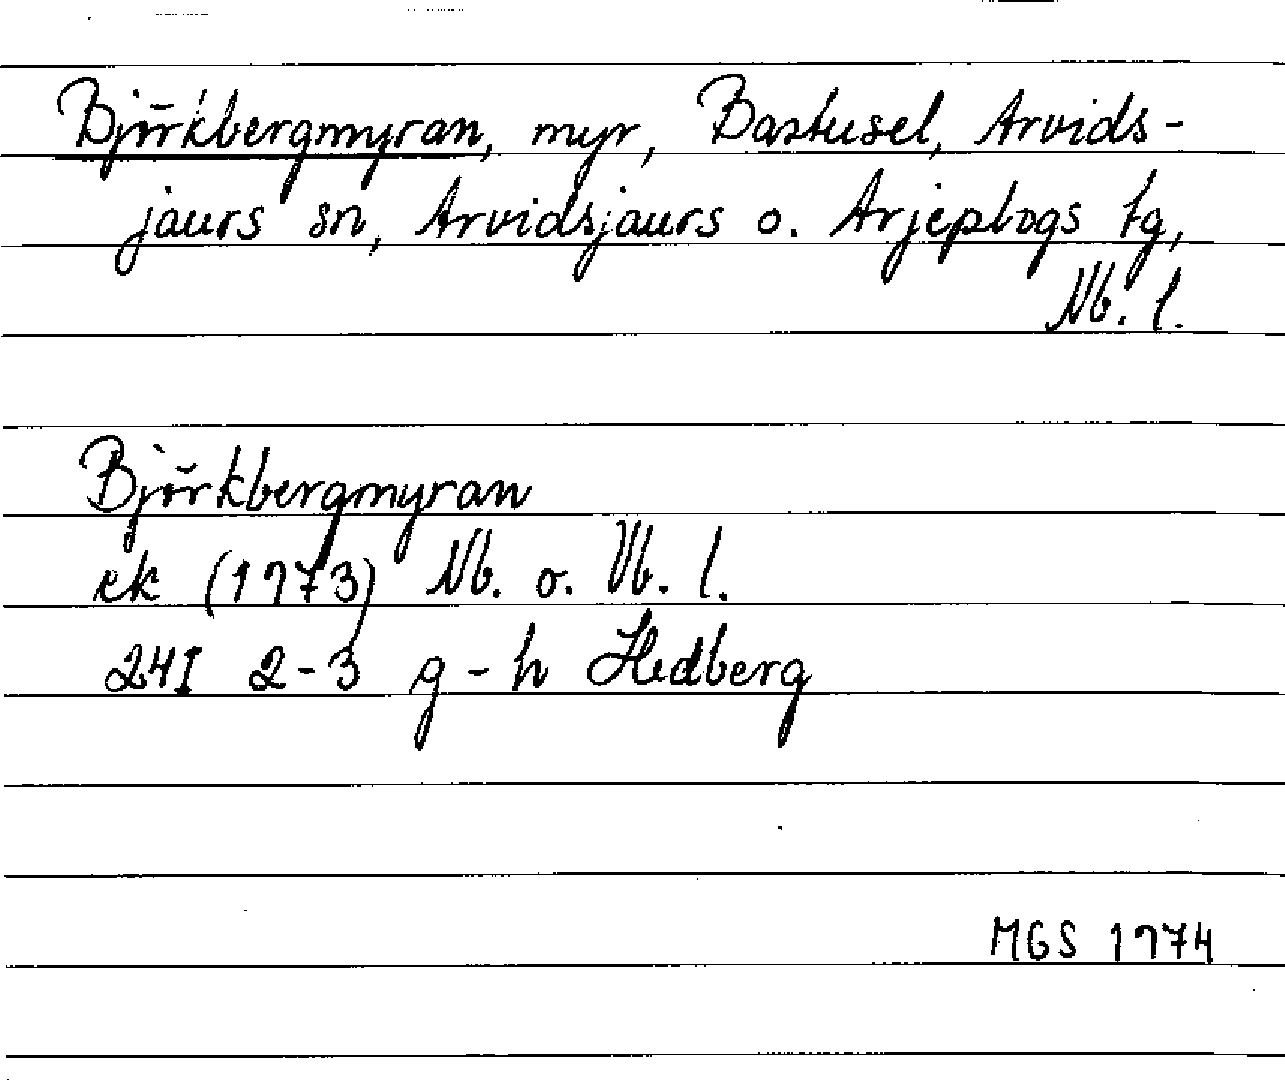 Björkbergmyran, myr, Bastusel, Arvids-
jaurs sn, Arvidsjaurs o. Arjeplogs tg,
Nb. l.
Björkbergmyran
ek (1973) Nb. o. Vb. l.
24I 2-3 g-h Hedberg
MGS 1974